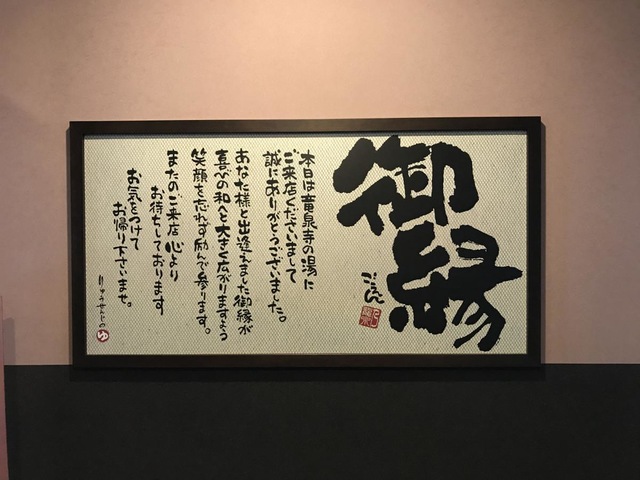 御縁
ごえん
本日は竜泉寺の湯に
ご来店くださいまして
誠にありがとうございました。
あなた様と出逢えました御縁が
喜びの和へと大きく広がりますよう
笑顔を忘れず励んで参ります。
またのご来店心より
お待ちしております
お気をつけて
お帰り下さいませ。
りゅうせんじの
ゆ